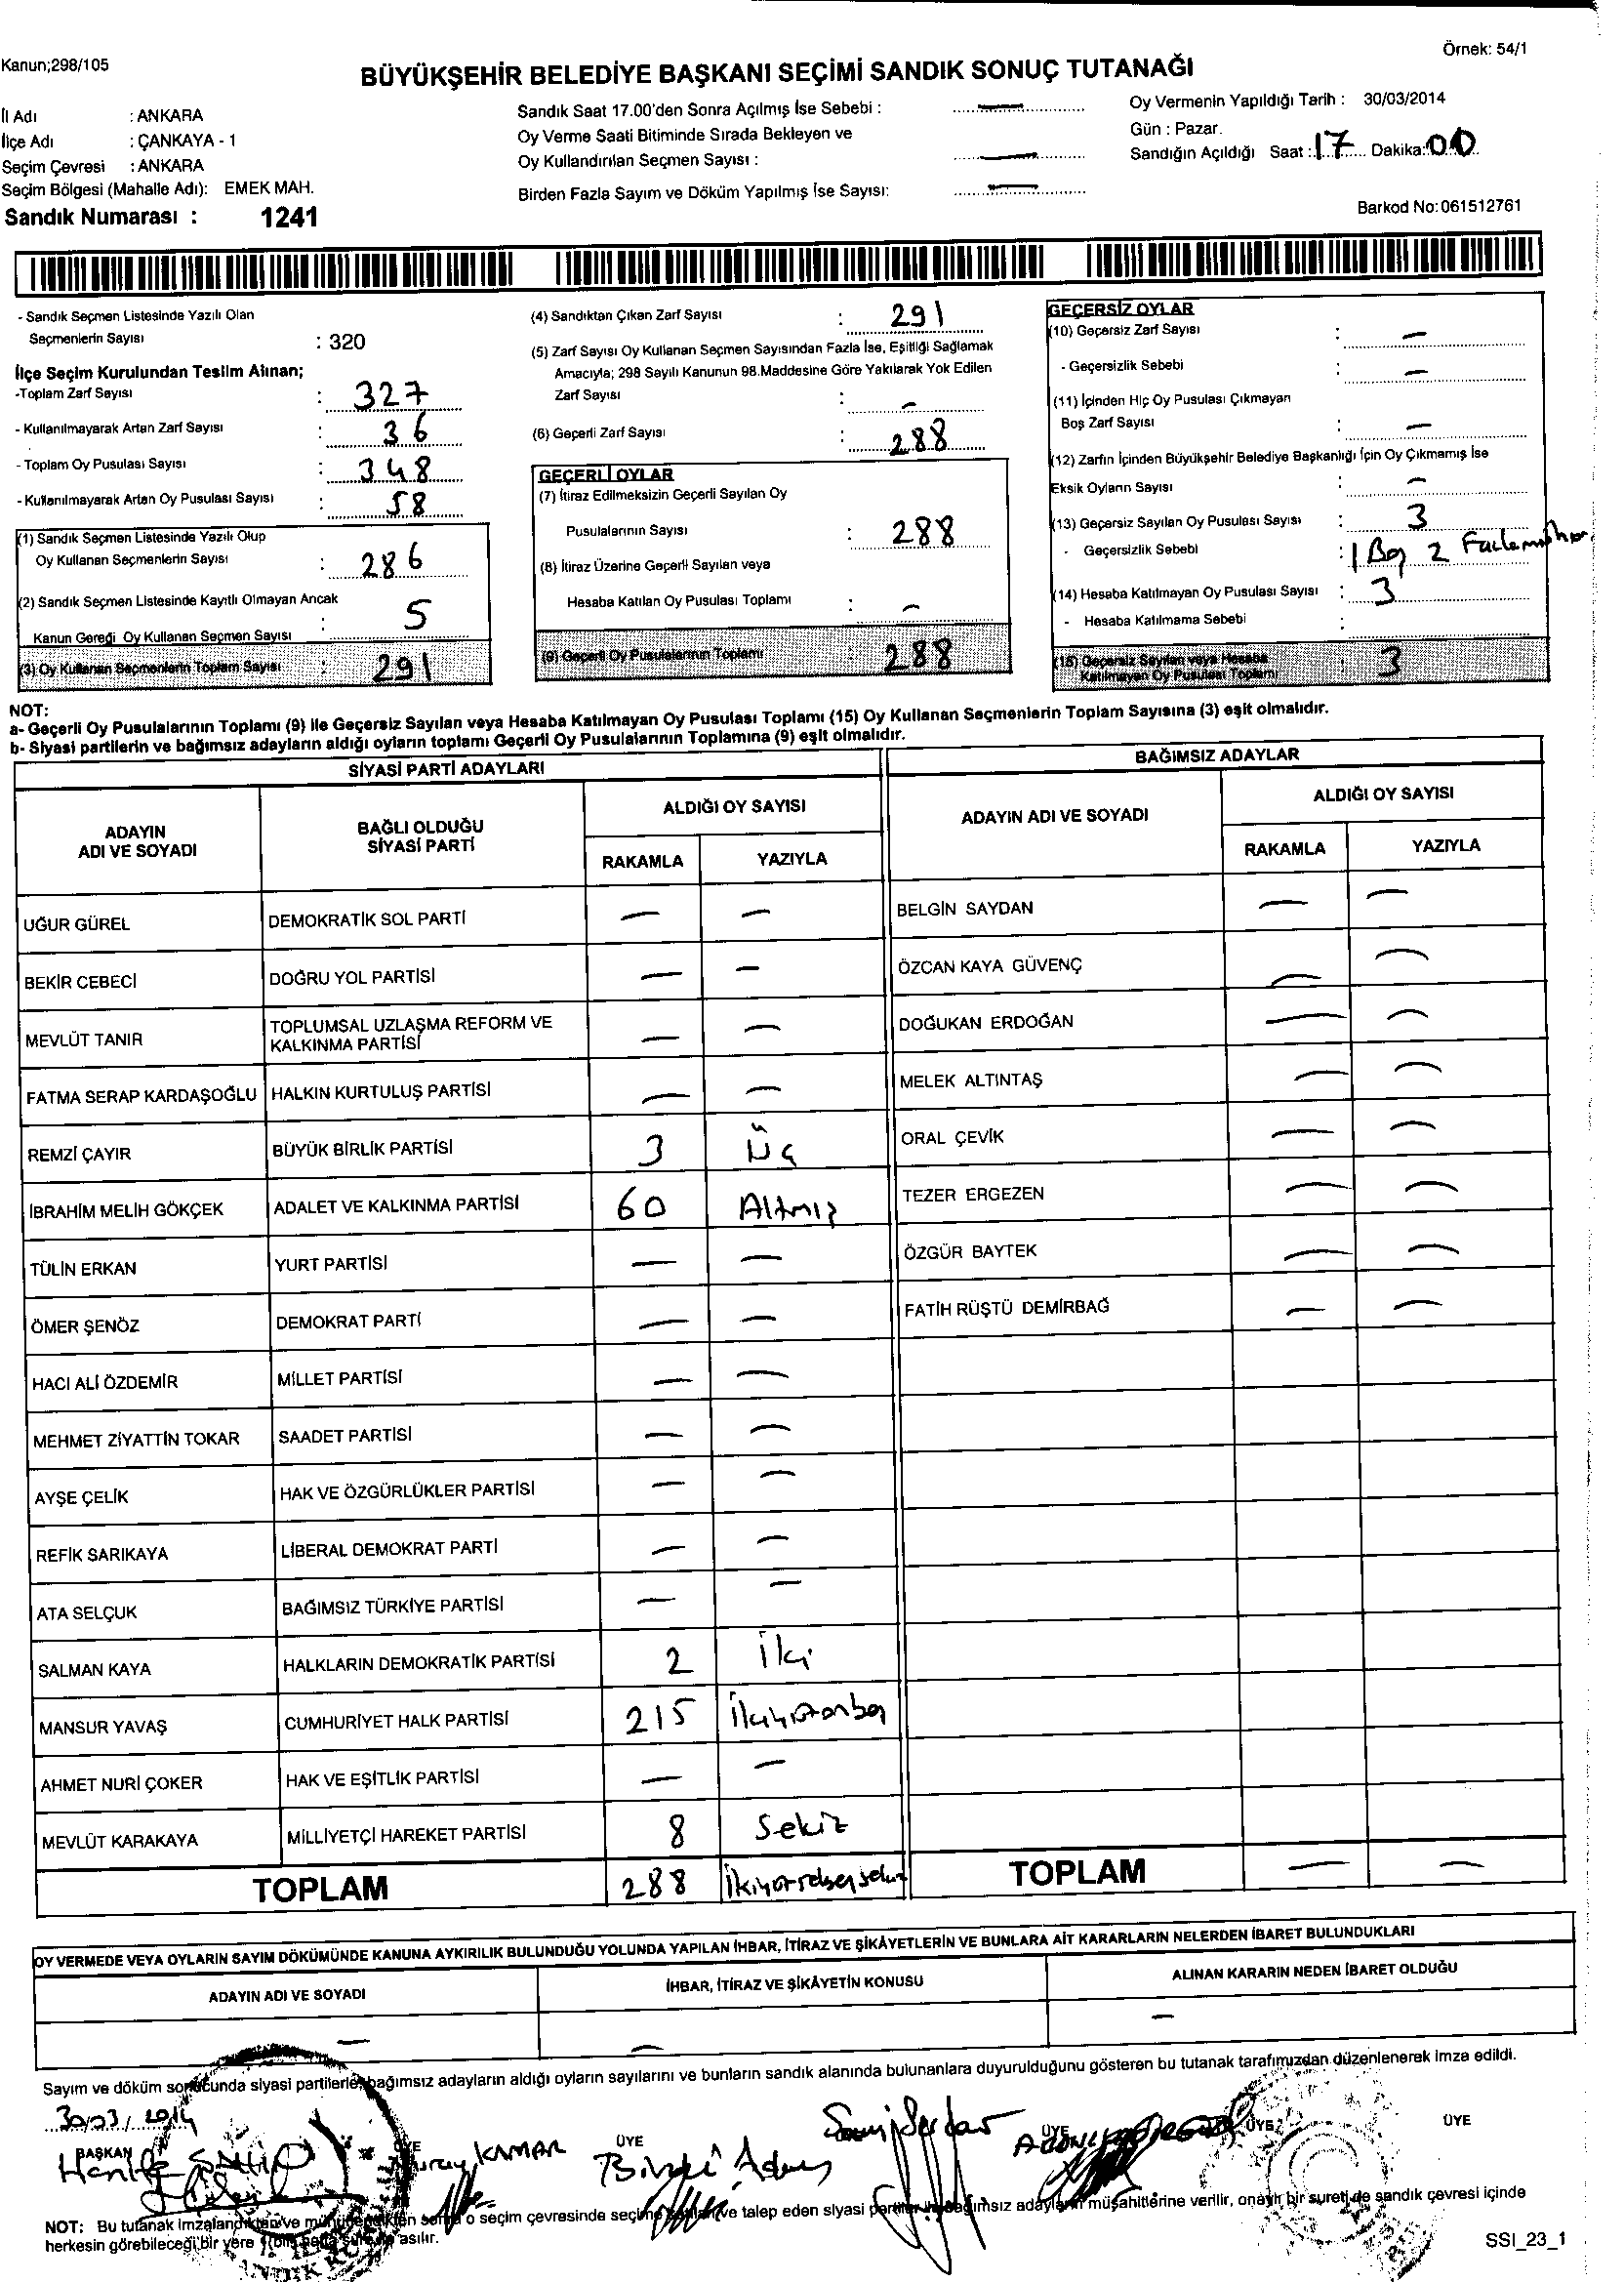 Kanun;298/105
Örnek: 54/1
BÜYÜKŞEHİR BELEDİYE BAŞKANI SEÇİMİ SANDIK SONUÇ TUTANAĞI
İl Adı : ANKARA
İlçe Adı : ÇANKAYA - 1
Seçim Çevresi : ANKARA
Seçim Bölgesi (Mahalle Adı): EMEK MAH.
Sandık Numarası : 1241
Sandık Saat 17.00'den Sonra Açılmış İse Sebebi : —
Oy Verme Saati Bitiminde Sırada Bekleyen ve
Oy Kullandırılan Seçmen Sayısı : —
Birden Fazla Sayım ve Döküm Yapılmış İse Sayısı: —
Oy Vermenin Yapıldığı Tarih : 30/03/2014
Gün : Pazar.
Sandığın Açıldığı Saat : 17 Dakika: 00
Barkod No: 061512761
- Sandık Seçmen Listesinde Yazılı Olan
Seçmenlerin Sayısı : 320
İlçe Seçim Kurulundan Teslim Alınan;
-Toplam Zarf Sayısı : 327
- Kullanılmayarak Artan Zarf Sayısı : 36
- Toplam Oy Pusulası Sayısı : 348
- Kullanılmayarak Artan Oy Pusulası Sayısı : 58
(1) Sandık Seçmen Listesinde Yazılı Olup
Oy Kullanan Seçmenlerin Sayısı : 286
(2) Sandık Seçmen Listesinde Kayıtlı Olmayan Ancak
Kanun Gereği Oy Kullanan Seçmen Sayısı : 5
(3) Oy Kullanan Seçmenlerin Toplam Sayısı : 291
(4) Sandıktan Çıkan Zarf Sayısı : 291
(5) Zarf Sayısı Oy Kullanan Seçmen Sayısından Fazla İse, Eşitliği Sağlamak
Amacıyla; 298 Sayılı Kanunun 98.Maddesine Göre Yakılarak Yok Edilen
Zarf Sayısı : —
(6) Geçerli Zarf Sayısı : 288
GEÇERLİ OYLAR
(7) İtiraz Edilmeksizin Geçerli Sayılan Oy
Pusulalarının Sayısı : 288
(8) İtiraz Üzerine Geçerli Sayılan veya
Hesaba Katılan Oy Pusulası Toplamı : —
(9) Geçerli Oy Pusulalarının Toplamı : 288
GEÇERSİZ OYLAR
(10) Geçersiz Zarf Sayısı : —
- Geçersizlik Sebebi : —
(11) İçinden Hiç Oy Pusulası Çıkmayan
Boş Zarf Sayısı : —
(12) Zarfın İçinden Büyükşehir Belediye Başkanlığı İçin Oy Çıkmamış İse
Eksik Oyların Sayısı : —
(13) Geçersiz Sayılan Oy Pusulası Sayısı : 3
- Geçersizlik Sebebi : 1 Boş 2
(14) Hesaba Katılmayan Oy Pusulası Sayısı : 3
- Hesaba Katılmama Sebebi :
(15) Geçersiz Sayılan veya Hesaba
Katılmayan Oy Pusulası Toplamı : 3
NOT:
a- Geçerli Oy Pusulalarının Toplamı (9) ile Geçersiz Sayılan veya Hesaba Katılmayan Oy Pusulası Toplamı (15) Oy Kullanan Seçmenlerin Toplam Sayısına (3) eşit olmalıdır.
b- Siyasi partilerin ve bağımsız adayların aldığı oyların toplamı Geçerli Oy Pusulalarının Toplamına (9) eşit olmalıdır.
SİYASİ PARTİ ADAYLARI
ADAYIN ADI VE SOYADI BAĞLI OLDUĞU SİYASİ PARTİ ALDIĞI OY SAYISI
RAKAMLA YAZIYLA
UĞUR GÜREL DEMOKRATİK SOL PARTİ — —
BEKİR CEBECİ DOĞRU YOL PARTİSİ — —
MEVLÜT TANIR TOPLUMSAL UZLAŞMA REFORM VE KALKINMA PARTİSİ — —
FATMA SERAP KARDAŞOĞLU HALKIN KURTULUŞ PARTİSİ — —
REMZİ ÇAYIR BÜYÜK BİRLİK PARTİSİ 3 Üç
İBRAHİM MELİH GÖKÇEK ADALET VE KALKINMA PARTİSİ 60 Altmış
TÜLİN ERKAN YURT PARTİSİ — —
ÖMER ŞENÖZ DEMOKRAT PARTİ — —
HACI ALİ ÖZDEMİR MİLLET PARTİSİ — —
MEHMET ZİYATTİN TOKAR SAADET PARTİSİ — —
AYŞE ÇELİK HAK VE ÖZGÜRLÜKLER PARTİSİ — —
REFİK SARIKAYA LİBERAL DEMOKRAT PARTİ — —
ATA SELÇUK BAĞIMSIZ TÜRKİYE PARTİSİ — —
SALMAN KAYA HALKLARIN DEMOKRATİK PARTİSİ 2 İki
MANSUR YAVAŞ CUMHURİYET HALK PARTİSİ 215 İkiyüzonbeş
AHMET NURİ ÇOKER HAK VE EŞİTLİK PARTİSİ — —
MEVLÜT KARAKAYA MİLLİYETÇİ HAREKET PARTİSİ 8 Sekiz
TOPLAM 288
BAĞIMSIZ ADAYLAR
ADAYIN ADI VE SOYADI ALDIĞI OY SAYISI
RAKAMLA YAZIYLA
BELGİN SAYDAN — —
ÖZCAN KAYA GÜVENÇ — —
DOĞUKAN ERDOĞAN — —
MELEK ALTINTAŞ — —
ORAL ÇEVİK — —
TEZER ERGEZEN — —
ÖZGÜR BAYTEK — —
FATİH RÜŞTÜ DEMİRBAĞ — —
TOPLAM — —
OY VERMEDE VEYA OYLARIN SAYIM DÖKÜMÜNDE KANUNA AYKIRILIK BULUNDUĞU YOLUNDA YAPILAN İHBAR, İTİRAZ VE ŞİKÂYETLERİN VE BUNLARA AİT KARARLARIN NELERDEN İBARET BULUNDUKLARI
ADAYIN ADI VE SOYADI İHBAR, İTİRAZ VE ŞİKÂYETİN KONUSU ALINAN KARARIN NEDEN İBARET OLDUĞU
— — —
Sayım ve döküm sonucunda siyasi partilerle, bağımsız adayların aldığı oyların sayılarını ve bunların sandık alanında bulunanlara duyurulduğunu gösteren bu tutanak tarafımızdan düzenlenerek imza edildi.
30/03/2014
BAŞKAN ÜYE ÜYE ÜYE ÜYE ÜYE
Nuray KAMAR
NOT: Bu tutanak imzalandıktan ve mühürlendikten sonra o seçim çevresinde seçime katılan ve talep eden siyasi partiler ile bağımsız adayların müşahitlerine verilir, onaylı bir sureti de sandık çevresi içinde
herkesin görebileceği bir yere 1(bir) hafta süre ile asılır.
SSI_23_1